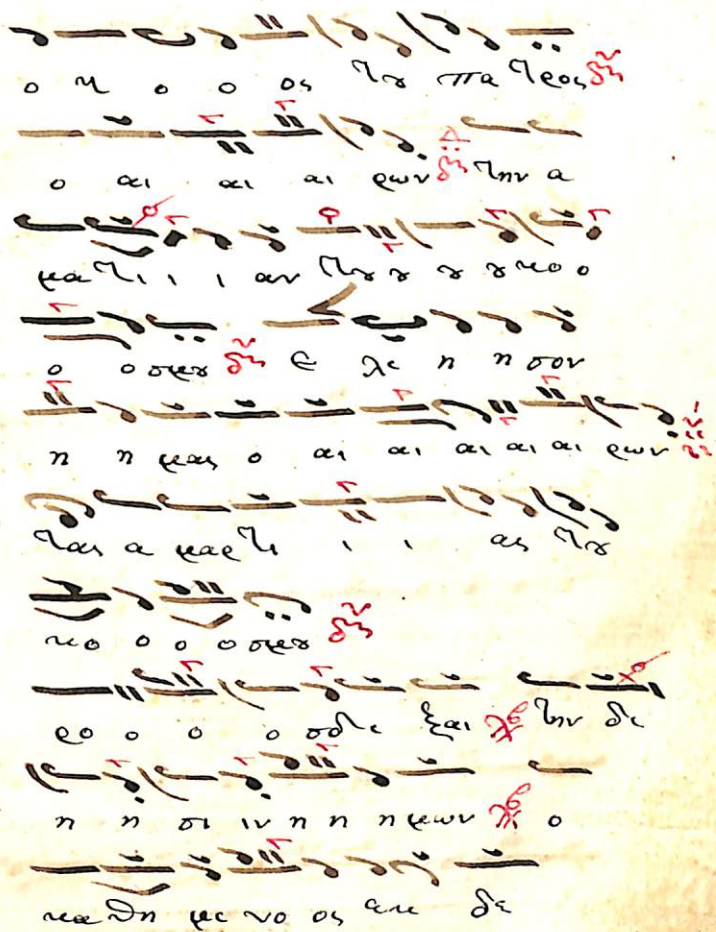 ο υι ο ο ος τȣ πα τρος
ο αι αι αι ρων την α
μα τι ι ι αν τȣ ȣ ȣ ȣ κο ο
ο ο σμȣ Ε λε η η σον
η η μας ο αι αι αι αι αι ρων
τας α μαρ τι ι ι ας τȣ
κο ο ο ο σμȣ
ρο ο ο ο σδε ξαι την δε
η η σι ιν η η η μων ο
κα θη με νο ος εκ δε